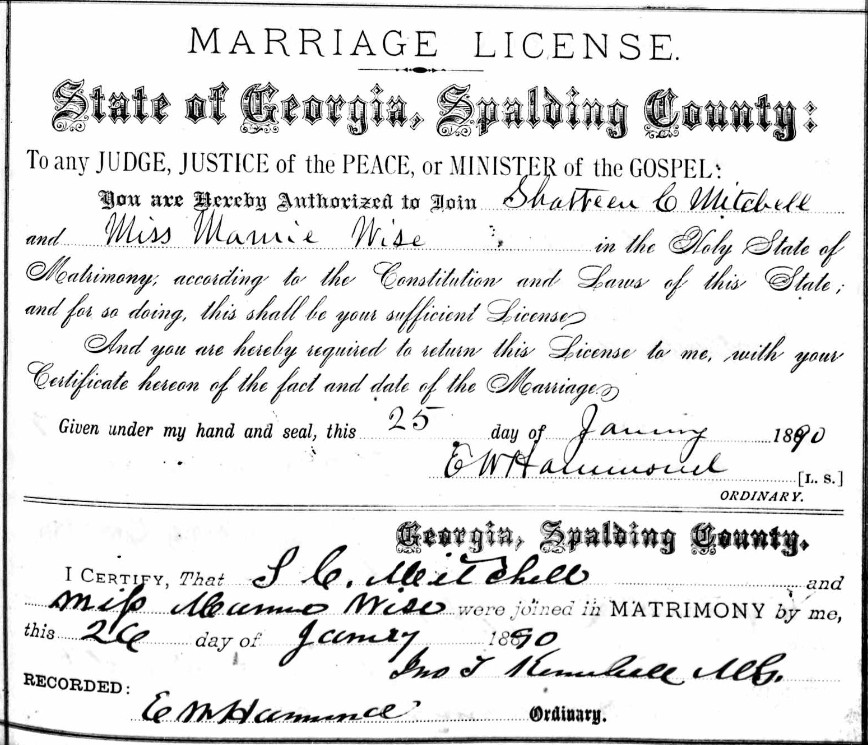 MARRIAGE LICENSE.
State of Georgia, Spalding County:
To any JUDGE, JUSTICE of the PEACE, or MINISTER of the GOSPEL:
You are Hereby Authorized to Join Shatteen C Mitchell
and Miss Mamie Wise in the Holy State of
Matrimony, according to the Constitution and Laws of this State;
and for so doing, this shall be your sufficient License
And you are hereby required to return this License to me, with your
Certificate hereon of the fact and date of the Marriage
Given under my hand and seal, this 25 day of 1890
E W Hammond [L. S.]
ORDINARY.
Georgia, Spalding County.
I CERTIFY, That S C. Mitchell and
Miss Mamie Wise were joined in MATRIMONY by me,
this 26 day of 1890
Jno T M.G.
RECORDED:
E W Hammond Ordinary.